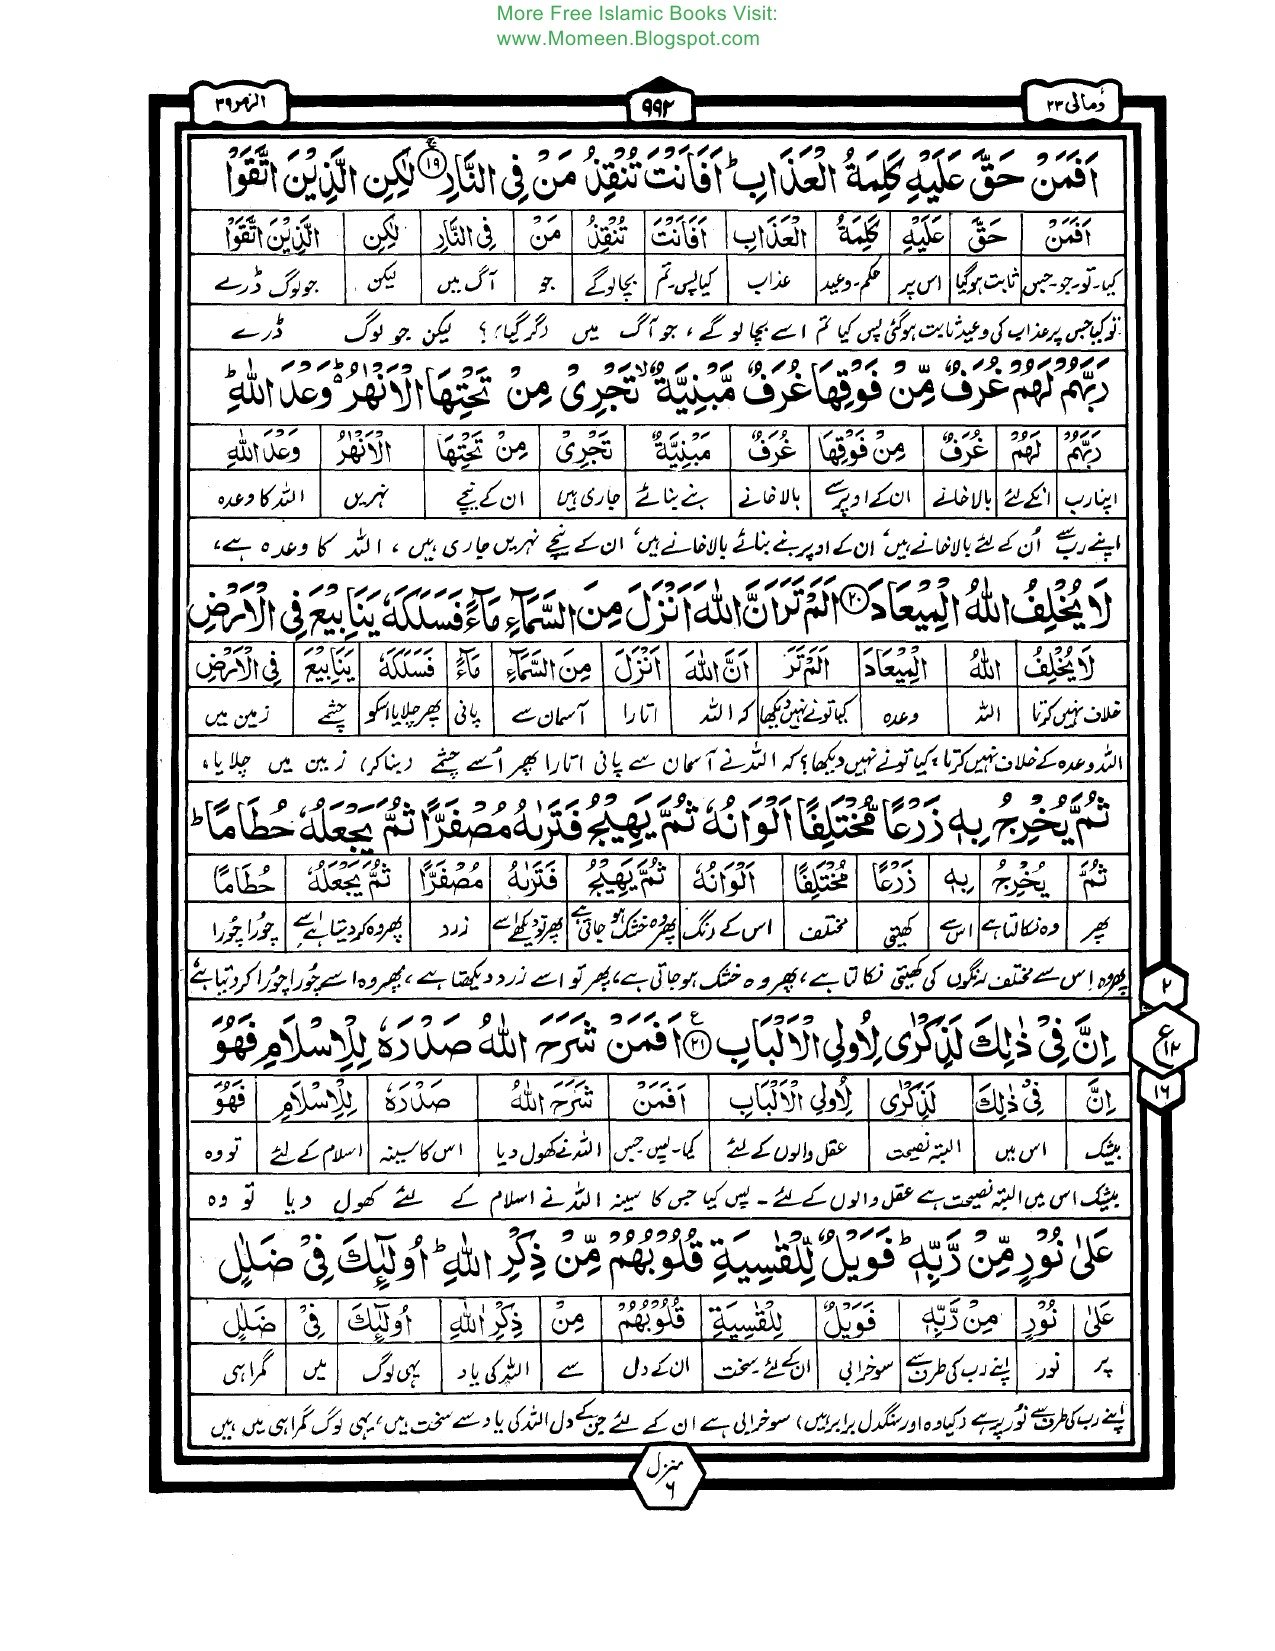 More Free Islamic Books Visit:
www.Momeen.Blogspot.com
ومالی ۲۳ ۹۹۲ الزمر ۳۹
اَفَمَنْ حَقَّ عَلَيْهِ كَلِمَةُ الْعَذَابِ ؕ اَفَاَنْتَ تُنْقِذُ مَنْ فِى النَّارِ ۱۹ لٰكِنِ الَّذِيْنَ اتَّقَوْا
اَفَمَنْ حَقَّ عَلَيْهِ كَلِمَةُ الْعَذَابِ اَفَاَنْتَ تُنْقِذُ مَنْ فِى النَّارِ لٰكِنِ الَّذِيْنَ اتَّقَوْا
کیا۔تو۔جو۔جس ثابت ہوگیا اس پر حکم۔وعید عذاب کیا پس۔تم بچا لوگے جو آگ میں لیکن جو لوگ ڈرے
تو کیا جس پر عذاب کی وعید ثابت ہوگئی پس کیا تم اسے بچا لو گے ، جو آگ میں (گر گیا) ؟ لیکن جو لوگ ڈرے
رَبَّهُمْ لَهُمْ غُرَفٌ مِّنْ فَوْقِهَا غُرَفٌ مَّبْنِيَّةٌ ۙ تَجْرِىْ مِنْ تَحْتِهَا الْاَنْهٰرُ ؕ وَعْدَ اللّٰهِ ؕ
رَبَّهُمْ لَهُمْ غُرَفٌ مِنْ فَوْقِهَا غُرَفٌ مَبْنِيَّةٌ تَجْرِىْ مِنْ تَحْتِهَا الْاَنْهٰرُ وَعْدَ اللّٰهِ
اپنا رب انکے لئے بالا خانے ان کے اوپر سے بالا خانے بنے بنائے جاری ہیں ان کے نیچے نہریں اللہ کا وعدہ
اپنے رب سے اُن کے لئے بالا خانے ہیں، ان کے اوپر بنے بنائے بالا خانے ہیں، ان کے نیچے نہریں جاری ہیں ، اللہ کا وعدہ ہے،
لَا يُخْلِفُ اللّٰهُ الْمِيْعَادَ ۲۰ اَلَمْ تَرَ اَنَّ اللّٰهَ اَنْزَلَ مِنَ السَّمَآءِ مَآءً فَسَلَكَهٗ يَنَابِيْعَ فِى الْاَرْضِ
لَا يُخْلِفُ اللّٰهُ الْمِيْعَادَ اَلَمْ تَرَ اَنَّ اللّٰهَ اَنْزَلَ مِنَ السَّمَآءِ مَآءً فَسَلَكَهٗ يَنَابِيْعَ فِى الْاَرْضِ
خلاف نہیں کرتا اللہ وعدہ کیا تونے نہیں دیکھا کہ اللہ اتارا آسمان سے پانی پھر چلایا اسکو چشمے زمین میں
اللہ وعدہ کے خلاف نہیں کرتا، کیا تونے نہیں دیکھا؟ کہ اللہ نے آسمان سے پانی اتارا پھر اُسے چشمے (بنا کر) زمین میں چلایا،
ثُمَّ يُخْرِجُ بِهٖ زَرْعًا مُّخْتَلِفًا اَلْوَانُهٗ ثُمَّ يَهِيْجُ فَتَرٰىهُ مُصْفَرًّا ثُمَّ يَجْعَلُهٗ حُطَامًا ؕ
ثُمَّ يُخْرِجُ بِهٖ زَرْعًا مُخْتَلِفًا اَلْوَانُهٗ ثُمَّ يَهِيْجُ فَتَرٰىهُ مُصْفَرًّا ثُمَّ يَجْعَلُهٗ حُطَامًا
پھر وہ نکالتا ہے اس سے کھیتی مختلف اس کے رنگ پھر وہ خشک ہو جاتی ہے پھر تو دیکھے اسے زرد پھر وہ کر دیتا ہے اسے چُورا چُورا
پھر وہ اس سے مختلف رنگوں کی کھیتی نکالتا ہے، پھر وہ خشک ہو جاتی ہے، پھر تو اسے زرد دیکھتا ہے، پھر وہ اسے چُورا چُورا کر دیتا ہے
اِنَّ فِىْ ذٰلِكَ لَذِكْرٰى لِاُولِى الْاَلْبَابِ ۲۱ ع اَفَمَنْ شَرَحَ اللّٰهُ صَدْرَهٗ لِلْاِسْلَامِ فَهُوَ
اِنَّ فِىْ ذٰلِكَ لَذِكْرٰى لِاُولِى الْاَلْبَابِ اَفَمَنْ شَرَحَ اللّٰهُ صَدْرَهٗ لِلْاِسْلَامِ فَهُوَ
بیشک اس میں البتہ نصیحت عقل والوں کے لئے کیا۔پس جس اللہ نے کھول دیا اس کا سینہ اسلام کے لئے تو وہ
بیشک اس میں البتہ نصیحت ہے عقل والوں کے لئے۔ پس کیا جس کا سینہ اللہ نے اسلام کے لئے کھول دیا تو وہ
عَلٰى نُوْرٍ مِّنْ رَّبِّهٖ ؕ فَوَيْلٌ لِّلْقٰسِيَةِ قُلُوْبُهُمْ مِّنْ ذِكْرِ اللّٰهِ ؕ اُولٰٓئِكَ فِىْ ضَلٰلٍ
عَلٰى نُوْرٍ مِنْ رَبِّهٖ فَوَيْلٌ لِلْقٰسِيَةِ قُلُوْبُهُمْ مِنْ ذِكْرِ اللّٰهِ اُولٰٓئِكَ فِىْ ضَلٰلٍ
پر نور اپنے رب کی طرف سے سو خرابی ان کے لئے۔سخت ان کے دل سے اللہ کی یاد یہی لوگ میں گمراہی
اپنے رب کی طرف سے نُور پر ہے (کیا وہ اور سنگدل برابر ہیں) سو خرابی ہے ان کے لئے جن کے دل اللہ کی یاد سے سخت ہیں، یہی لوگ گمراہی میں ہیں
۲
ع ۱۲
۱۶
منزل ۶